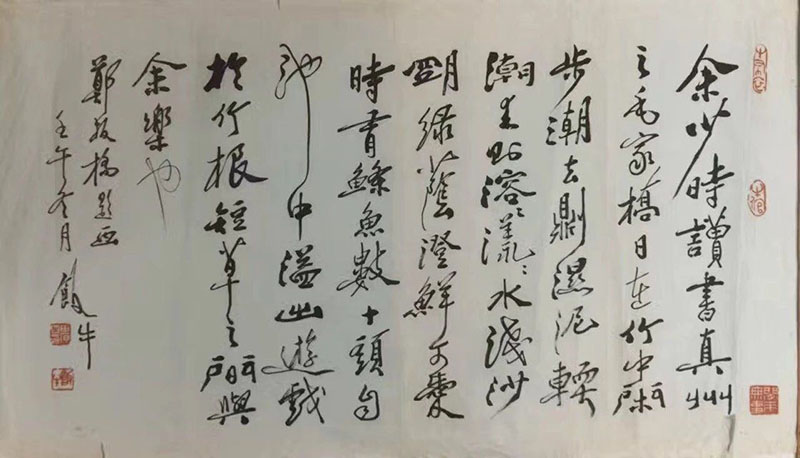 余少時讀書真州
之毛家橋日在竹中閑
步潮去則濕泥輭
潮來則溶〻漾〻水淺沙
明綠蔭澄鮮可愛
時有鰷魚數十頭自
池中溢出遊戲
於竹根短草之間與
余樂也
鄭板橋題畫
壬午冬月 飯牛